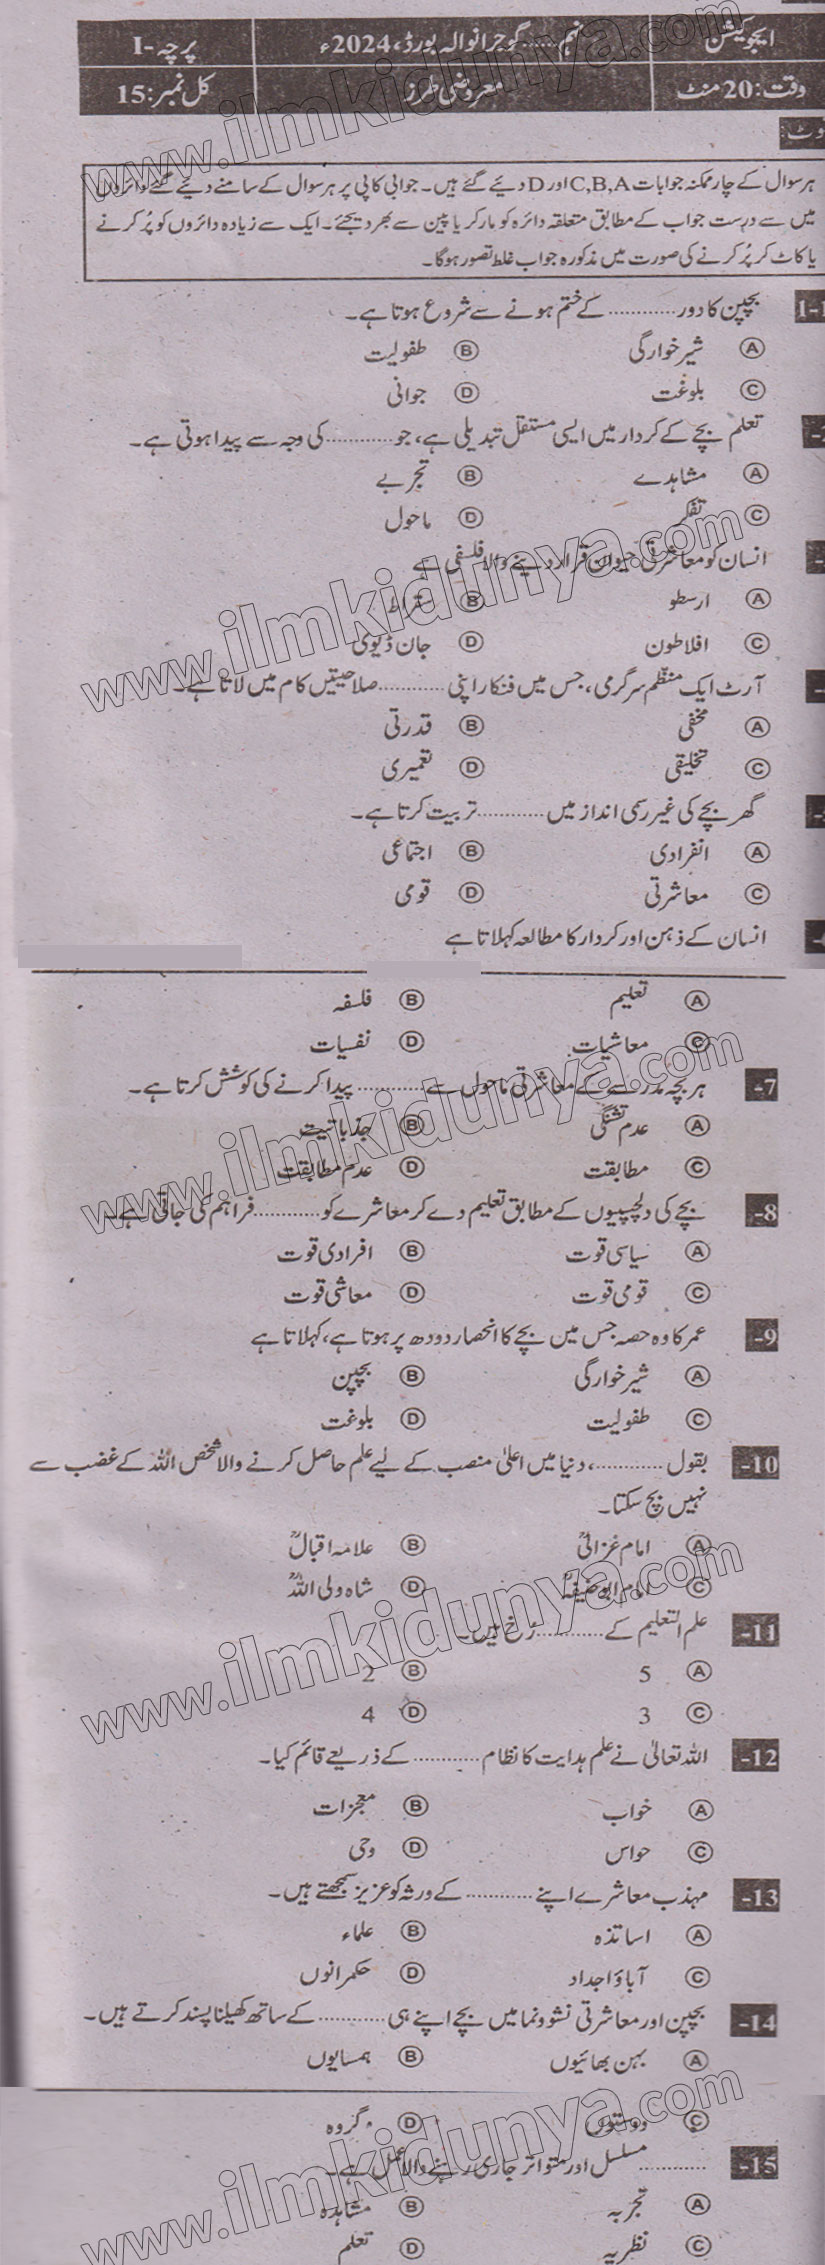 ایجوکیشن نہم......گوجرانوالہ بورڈ،2024ء پرچہ-I
وقت:20منٹ معروضی طرز کل نمبر:15
نوٹ:
ہر سوال کے چار ممکنہ جوابات C,B,A اور D دیئے گئے ہیں۔ جوابی کاپی پر ہر سوال کے سامنے دیئے گئے دائروں
میں سے درست جواب کے مطابق متعلقہ دائرہ کو مارکر یا پین سے بھر دیجئے۔ ایک سے زیادہ دائروں کو پُر کرنے
یا کاٹ کر پُر کرنے کی صورت میں مذکورہ جواب غلط تصور ہوگا۔
1-1 بچپن کا دور............کے ختم ہونے سے شروع ہوتا ہے۔
A شیر خوارگی B طفولیت
C بلوغت D جوانی
تعلم بچے کے کردار میں ایسی مستقل تبدیلی ہے، جو............کی وجہ سے پیدا ہوتی ہے۔
A مشاہدے B تجربے
C تفکر D ماحول
انسان کو معاشرتی حیوان قرار دینے والا فلسفی ہے
A ارسطو B سقراط
C افلاطون D جان ڈیوی
آرٹ ایک منظم سرگرمی، جس میں فنکار اپنی............صلاحیتیں کام میں لاتا ہے۔
A مخفی B قدرتی
C تخلیقی D تعمیری
گھر بچے کی غیر رسمی انداز میں............تربیت کرتا ہے۔
A انفرادی B اجتماعی
C معاشرتی D قومی
انسان کے ذہن اور کردار کا مطالعہ کہلاتا ہے
A تعلیم B فلسفہ
C معاشیات D نفسیات
7- ہر بچہ مدرسے کے معاشرتی ماحول سے............پیدا کرنے کی کوشش کرتا ہے۔
A عدم تشنگی B جذباتیت
C مطابقت D عدم مطابقت
8- بچے کی دلچسپیوں کے مطابق تعلیم دے کر معاشرے کو............فراہم کی جاتی ہے۔
A سیاسی قوت B افرادی قوت
C قومی قوت D معاشی قوت
9- عمر کا وہ حصہ جس میں بچے کا انحصار دودھ پر ہوتا ہے، کہلاتا ہے
A شیر خوارگی B بچپن
C طفولیت D بلوغت
10- بقول............، دنیا میں اعلیٰ منصب کے لیے علم حاصل کرنے والا شخص اللہ کے غضب سے
نہیں بچ سکتا۔
A امام غزالیؒ B علامہ اقبالؒ
C امام ابوحنیفہؒ D شاہ ولی اللہؒ
11- علم التعلیم کے............رُخ ہیں۔
A 5 B 2
C 3 D 4
12- اللہ تعالیٰ نے علم ہدایت کا نظام............کے ذریعے قائم کیا۔
A خواب B معجزات
C حواس D وحی
13- مہذب معاشرے اپنے............کے ورثہ کو عزیز سمجھتے ہیں۔
A اساتذہ B علماء
C آباؤ اجداد D حکمرانوں
14- بچپن اور معاشرتی نشوونما میں بچے اپنے ہی............کے ساتھ کھیلنا پسند کرتے ہیں۔
A بہن بھائیوں B ہمسایوں
C دوستوں D گروہ
15- ............مسلسل اور متواتر جاری رہنے والا عمل ہے۔
A تجربہ B مشاہدہ
C نظریہ D تعلم
www.ilmkidunya.com
www.ilmkidunya.com
www.ilmkidunya.com
www.ilmkidunya.com
www.ilmkidunya.com